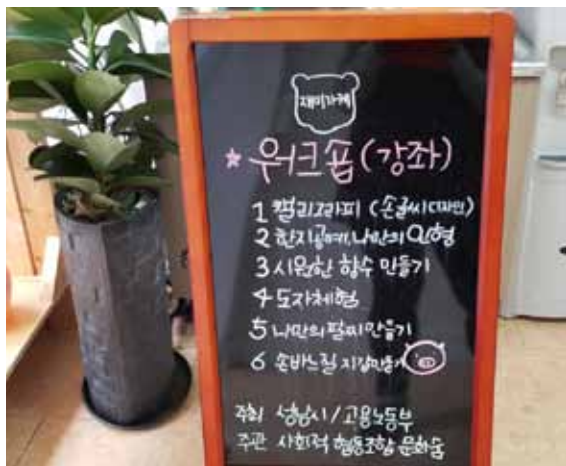 재미가게
★ 워크숍 (강좌)
1 캘리그라피 (손글씨디자인)
2 한지공예, 나만의 인형
3 시원한 향수 만들기
4 도자체험
5 나만의 팔찌만들기
6 손바느질 지갑만들기
주최 성남시/고용노동부
주관 사회적 협동조합 문화숨